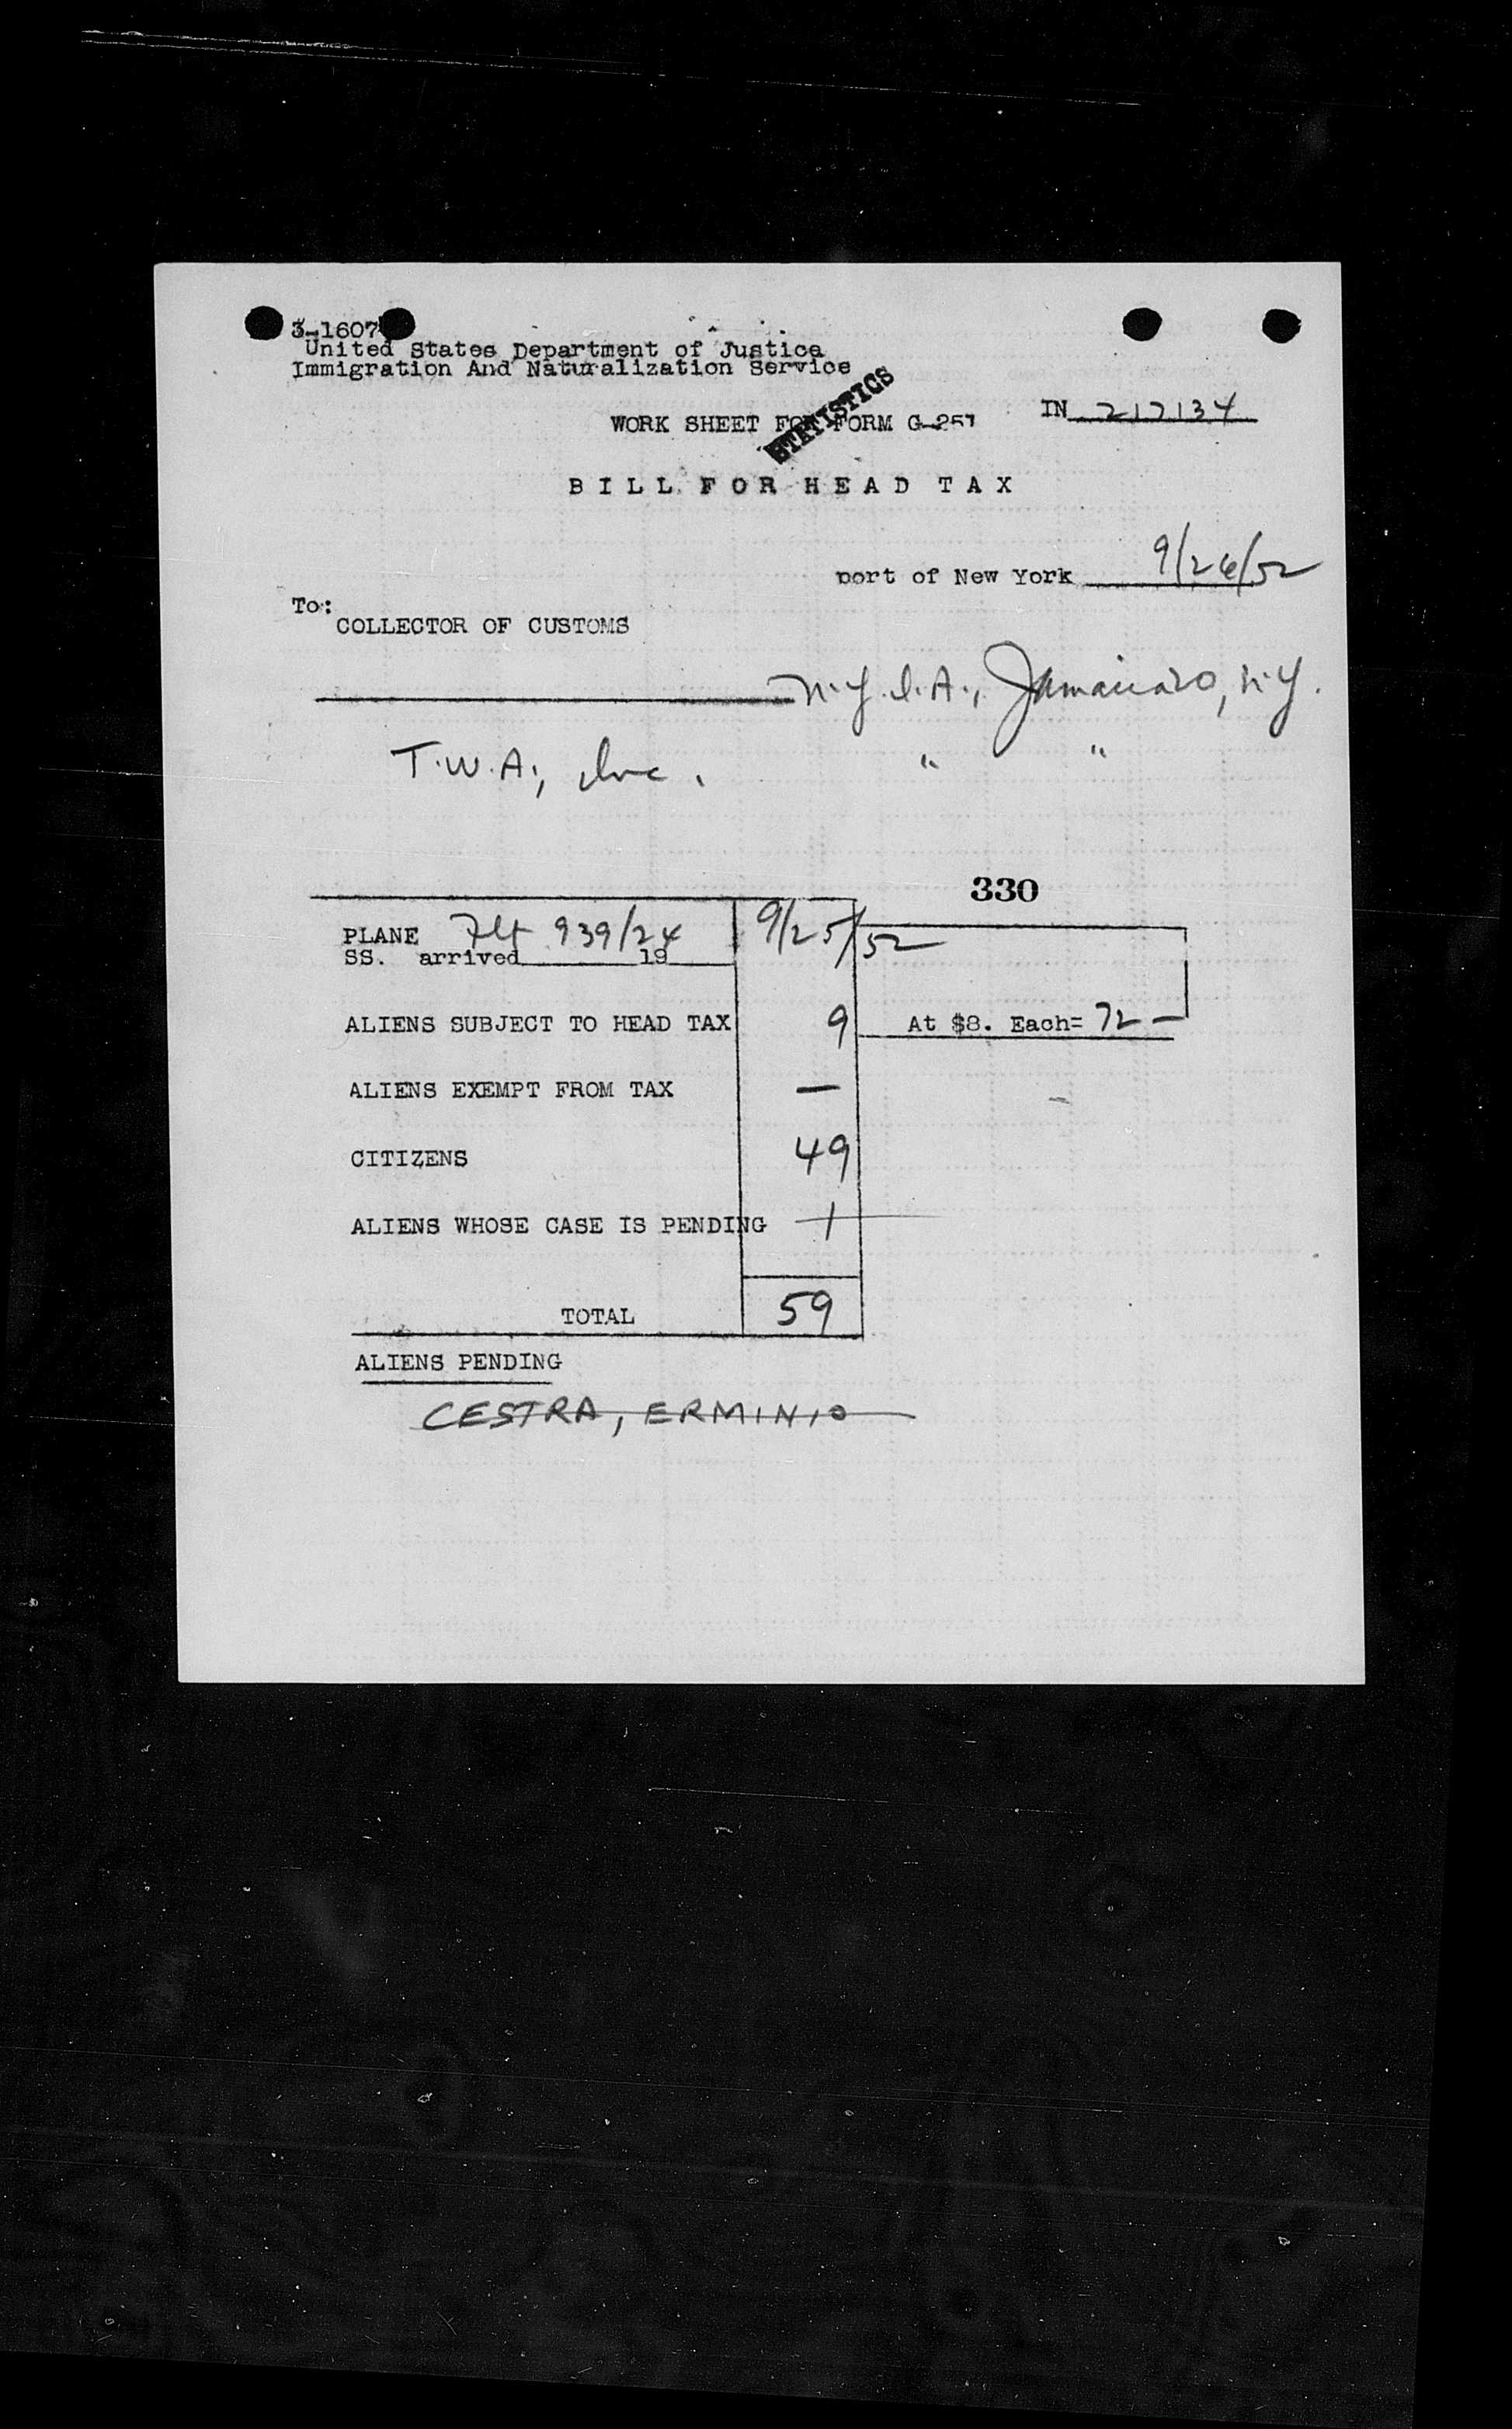 3-1607
United States Department of Justice
Immigration And Naturalization Service
STATISTICS
WORK SHEET FOR FORM G-257
IN 217134
BILL FOR HEAD TAX
port of New York 9/26/52
To:
COLLECTOR OF CUSTOMS
N.Y.I.A., N.Y.
T.W.A., Inc. " "
330
PLANE Flt 939/24 9/25/52
SS. arrived 19
ALIENS SUBJECT TO HEAD TAX 9 At $8. Each= 72 —
ALIENS EXEMPT FROM TAX —
CITIZENS 49
ALIENS WHOSE CASE IS PENDING 1
TOTAL 59
ALIENS PENDING
CESTRA, ERMINIO